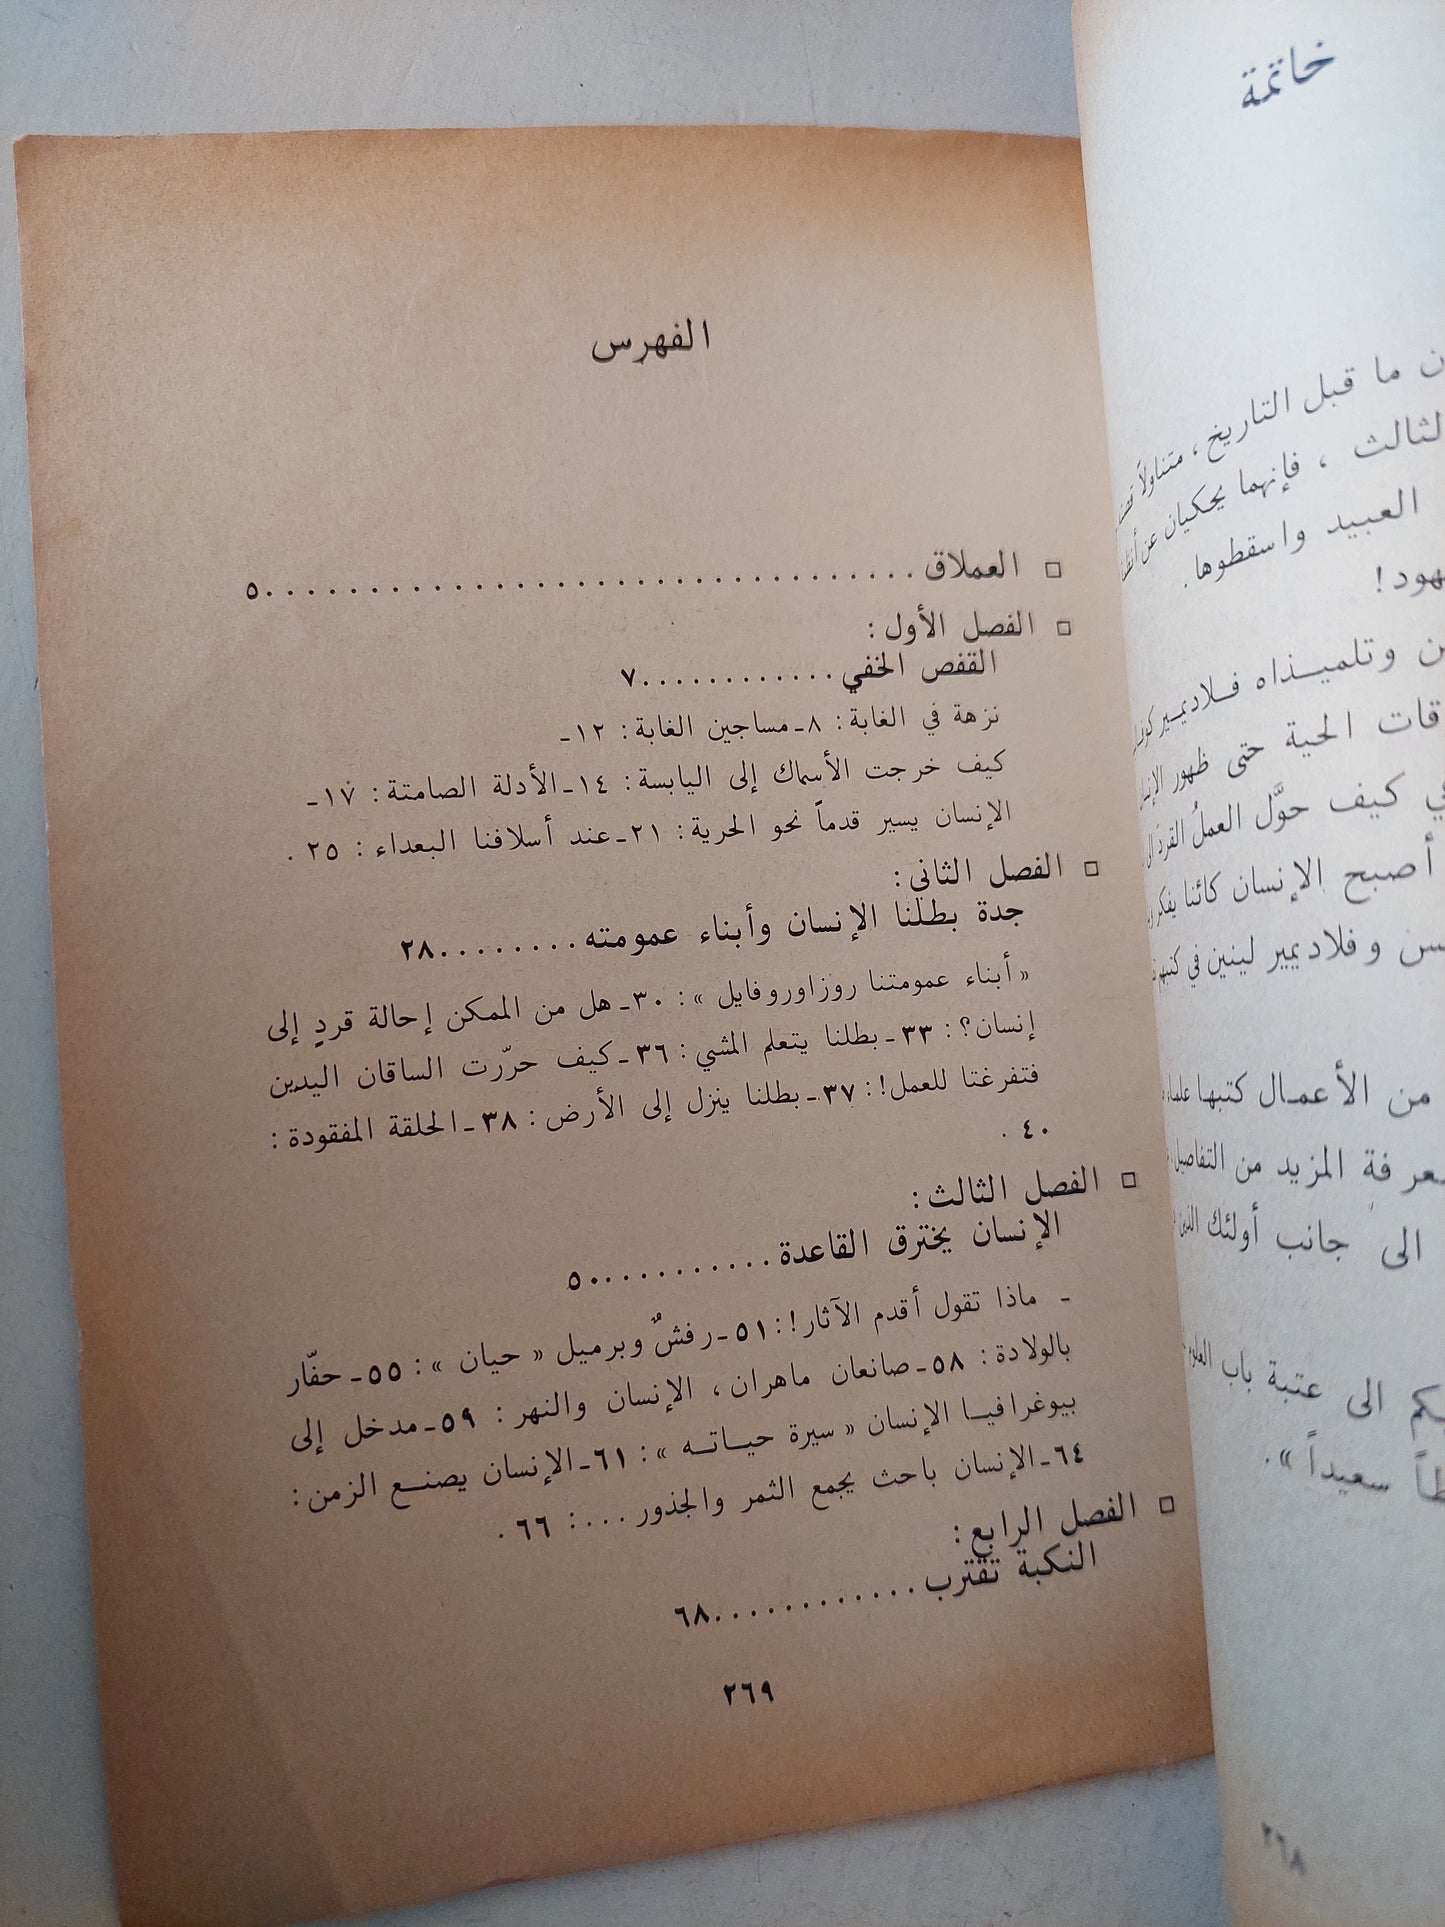 خاتمة
ن ما قبل التاريخ ، متناولاً
لثالث ، فإنهما يحكيان عن
العبيد واسقطوها .
هود !
ن وتلميـذاه فـلاديمـير
قات الحية حتى ظهور
ي كيف حوَّل العملُ القردَ
أصبح الإنسان كائنا يفكر
لس وفلاديمير لينين في
من الأعمـال كتبها علماء
عرفة المزيد من التفاصيل
الى جانب أولئك
يكم الى عتبة باب العلوم
طاً سعيداً » .
٢٦٨
الفهرس
□ العملاق . . . . . . . . . . . . . . . . . . . . . . . . . . . . . . . . ٥
□ الفصل الأول :
القفص الخفي . . . . . . . . . . . . ٧
نزهة في الغابة : ٨ ـ مساجين الغابة : ١٢ ـ
كيف خرجت الأسماك إلى اليابسة : ١٤ ـ الأدلة الصامتة : ١٧ ـ
الإنسان يسير قدماً نحو الحرية : ٢١ ـ عند أسلافنا البعداء : ٢٥ .
□ الفصل الثاني :
جدة بطلنا الإنسان وأبناء عمومته . . . . . . . . ٢٨
« أبناء عمومتنا روزاوروفايل » : ٣٠ ـ هل من الممكن إحالة قردٍ إلى
إنسان ؟ : ٣٣ ـ بطلنا يتعلم المشي : ٣٦ ـ كيف حرّرت الساقان اليدين
فتفرغتا للعمل ! : ٣٧ ـ بطلنا ينزل إلى الأرض : ٣٨ ـ الحلقة المفقودة :
٤٠ .
□ الفصل الثالث :
الإنسان يخترق القاعدة . . . . . . . . . . . ٥٠
ـ ماذا تقول أقدم الآثار ! : ٥١ ـ رفشٌ وبرميل « حيان » : ٥٥ ـ حفّار
بالولادة : ٥٨ ـ صانعان ماهران ، الإنسان والنهر : ٥٩ ـ مدخل إلى
بيوغرافيـا الإنسان « سيرة حيـاتـه » : ٦١ ـ الإنسان يصنـع الزمن :
٦٤ ـ الإنسان باحث يجمع الثمر والجذور . . . : ٦٦ .
□ الفصل الرابع :
النكبة تقترب . . . . . . . . . . . . ٦٨
٢٦٩